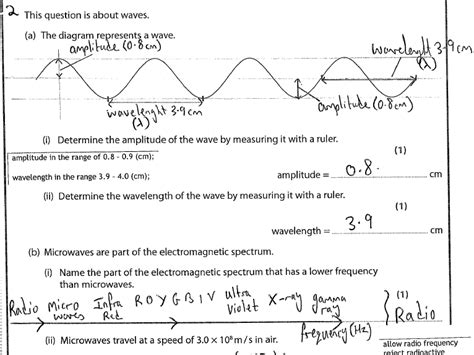 2 This question is about waves.
(a) The diagram represents a wave.
amplitude (0.8cm)
wavelenght 3.9cm
(λ)
wavelenght 3.9cm
(λ)
amplitude (0.8cm)
(i) Determine the amplitude of the wave by measuring it with a ruler.
(1)
amplitude in the range of 0.8 - 0.9 (cm);
wavelength in the range 3.9 - 4.0 (cm);
amplitude = 0.8 cm
(ii) Determine the wavelength of the wave by measuring it with a ruler.
(1)
wavelength = 3.9 cm
(b) Microwaves are part of the electromagnetic spectrum.
(i) Name the part of the electromagnetic spectrum that has a lower frequency
than microwaves.
Radio Micro waves Infra Red R O Y G B I V ultra violet X-ray gamma ray
(1)
Radio
frequency (Hz)
(ii) Microwaves travel at a speed of 3.0 × 10⁸ m/s in air.
allow radio frequency
reject radioactive